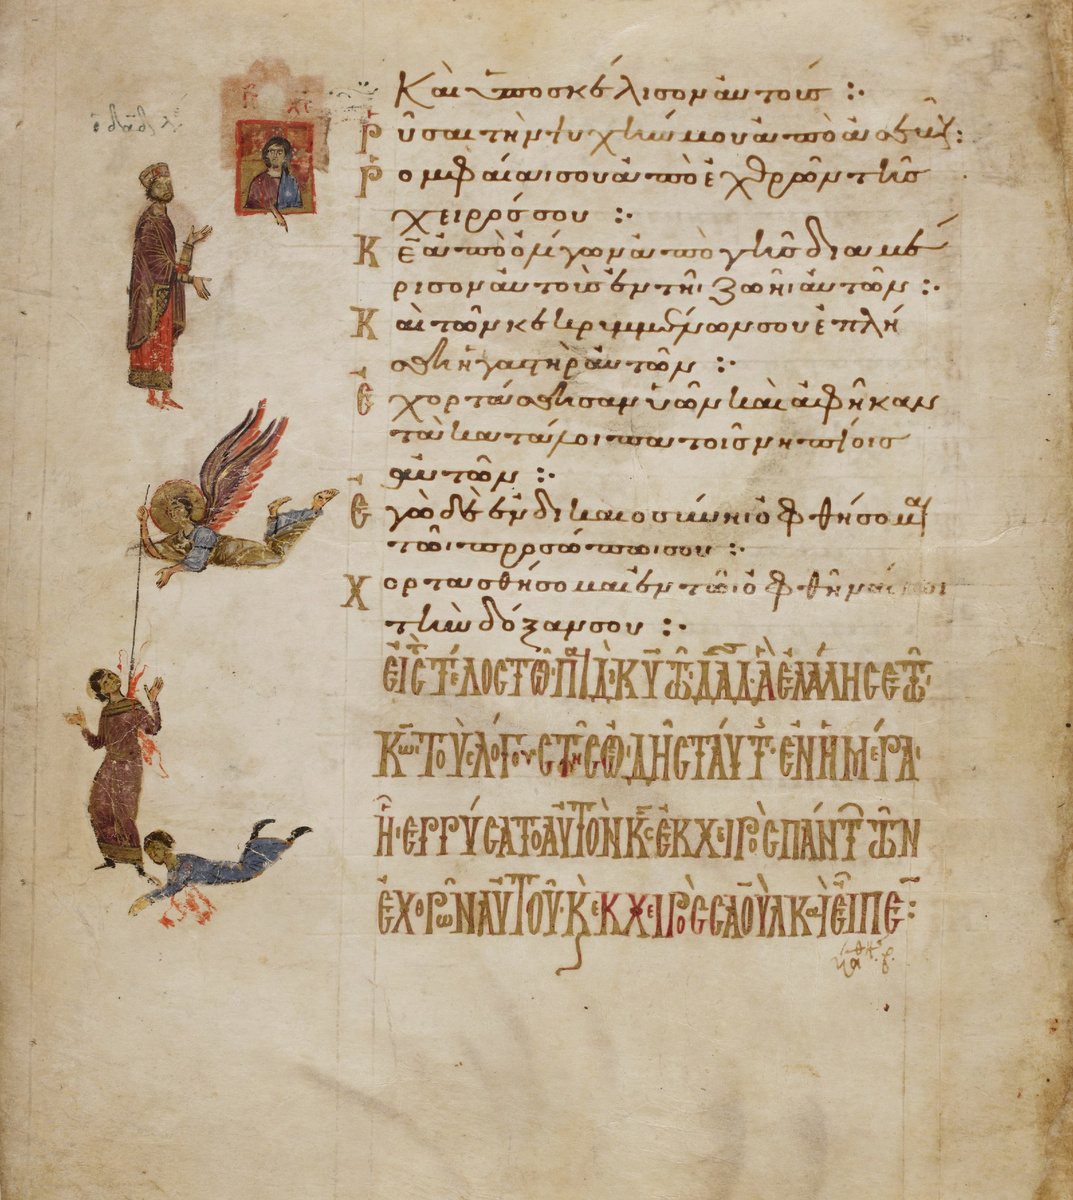 ὁ δα̅δ
ι̅ς̅ χ̅ς̅
Καὶ ὑποσκέλισον αὐτούς :·
Ῥῦσαι τὴν ψυχήν μου ἀπὸ ἀσεβοῦς :
Ῥομφαίαν σου ἀπὸ ἐχθρῶν τῆς
χειρός σου :·
Κ̅ε̅ ἀπὸ ὀλίγων ἀπὸ γῆς διαμέ
ρισον αὐτοὺς ἐν τῆι ζωῆι αὐτῶν :·
Καὶ τῶν κεκρυμμένων σου ἐπλή
σθη ἡ γαστὴρ αὐτῶν :·
Ἐχορτάσθησαν ὑῶν καὶ ἀφῆκαν
τὰ κατάλοιπα τοῖς νηπίοις
αὐτῶν :·
Ἐγὼ δὲ ἐν δικαιοσύνηι ὀφθήσομαι
τῶι προσώπωι σου :·
Χορτασθήσομαι ἐν τῶι ὀφθῆναί μοι
τὴν δόξαν σου :·
ΕἸΣ ΤῸ ΤΈΛΟΣ ΤΩ ΠΑΙΔῚ Κ̅Υ̅ ΤΩ Δ̅Α̅Δ̅ Ἃ ἘΛΆΛΗΣΕ ΤΩ
Κ̅Ω̅ ΤΟῪΣ ΛΌΓΟΥΣ ΤΗΣ ὨΔΗΣ ΤΑΎΤΗΣ ἘΝ ἩΜΈΡΑ
Ἧ ἘΡΡΎΣΑΤΟ ΑΥΤῸΝ Κ̅Σ̅ ἘΚ ΧΕΙΡῸΣ ΠΆΝΤΩΝ ΤΩΝ
ἘΧΘΡΩΝ ΑΥΤΟΥ Κ ἘΚ ΧΕΙΡῸΣ ΣΑΟῪΛ ΚΑῚ ΕἾΠΕ :